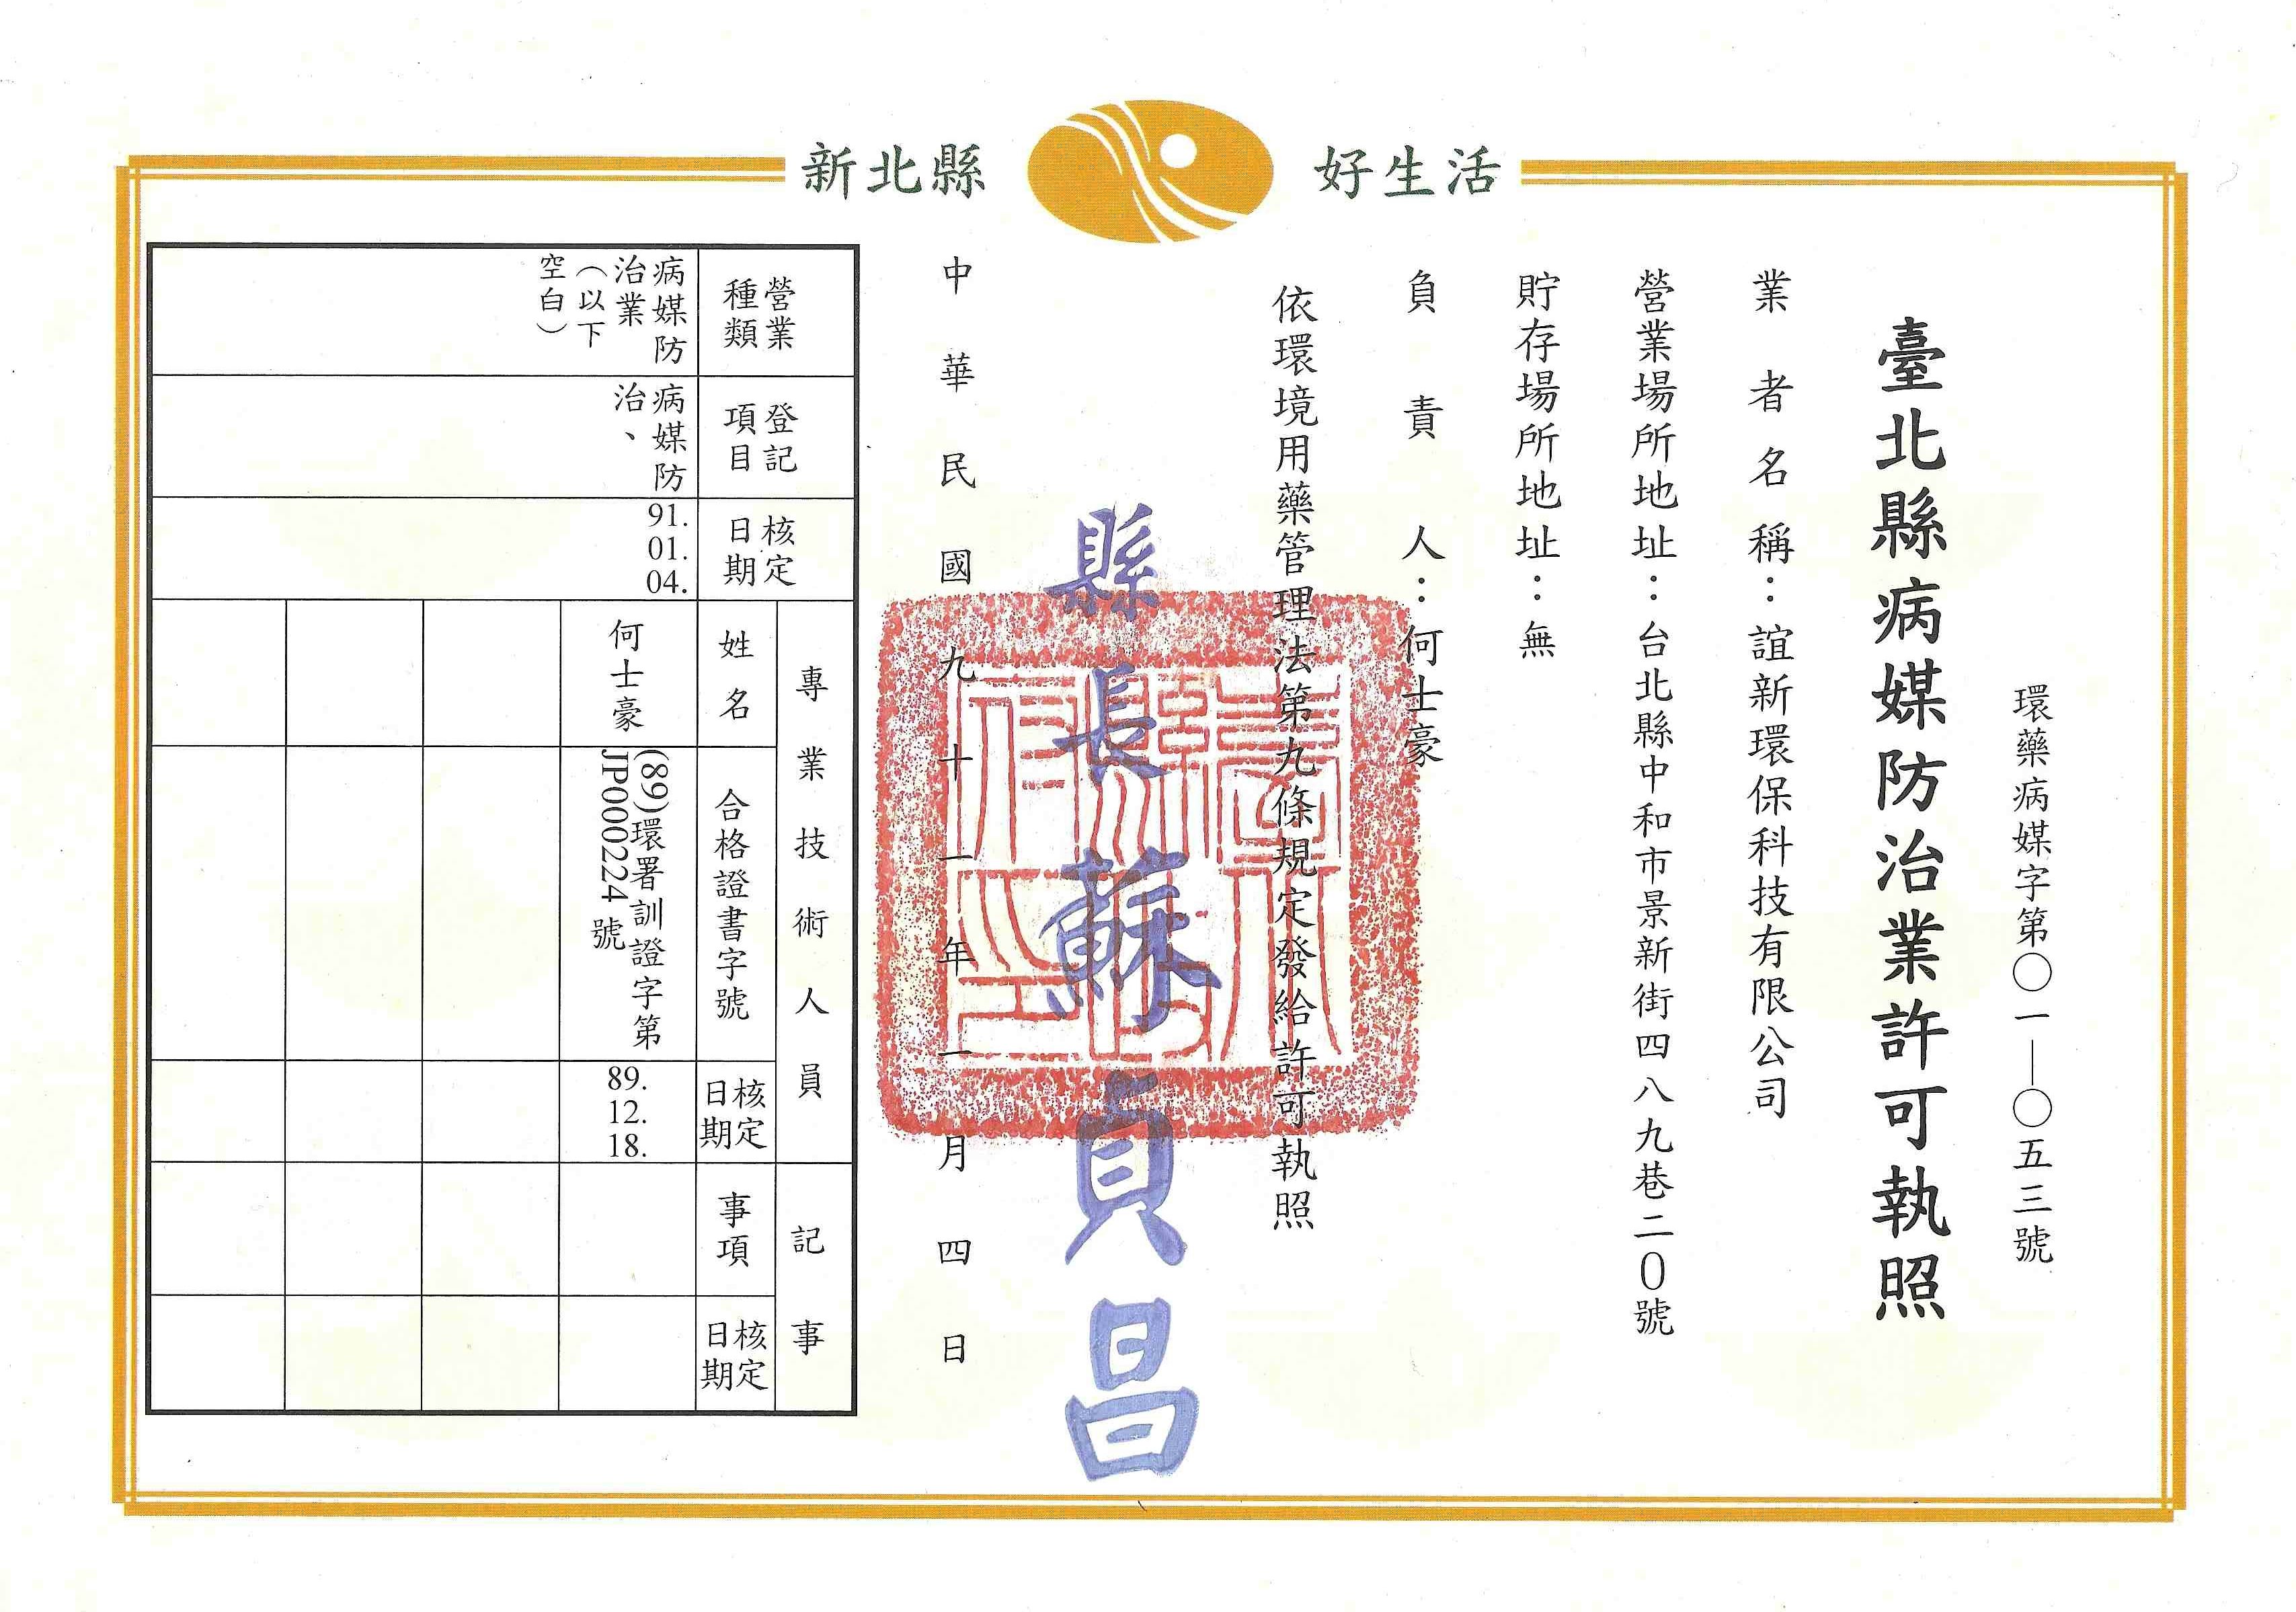 新北縣 好生活
環藥病媒字第〇一—〇五三號
臺北縣病媒防治業許可執照
業者名稱：誼新環保科技有限公司
營業場所地址：台北縣中和市景新街四八九巷二0號
貯存場所地址：無
負責人：何士豪
依環境用藥管理法第九條規定發給許可執照
縣長蘇貞昌
中華民國九十一年一月四日
營業種類
病媒防治業（以下空白）
登記項目
病媒防治、
核定日期
91.01.04.
專業技術人員
姓名
何士豪
合格證書字號
(89)環署訓證字第
JP000224號
核定日期
89.12.18.
記事
事項
核定日期